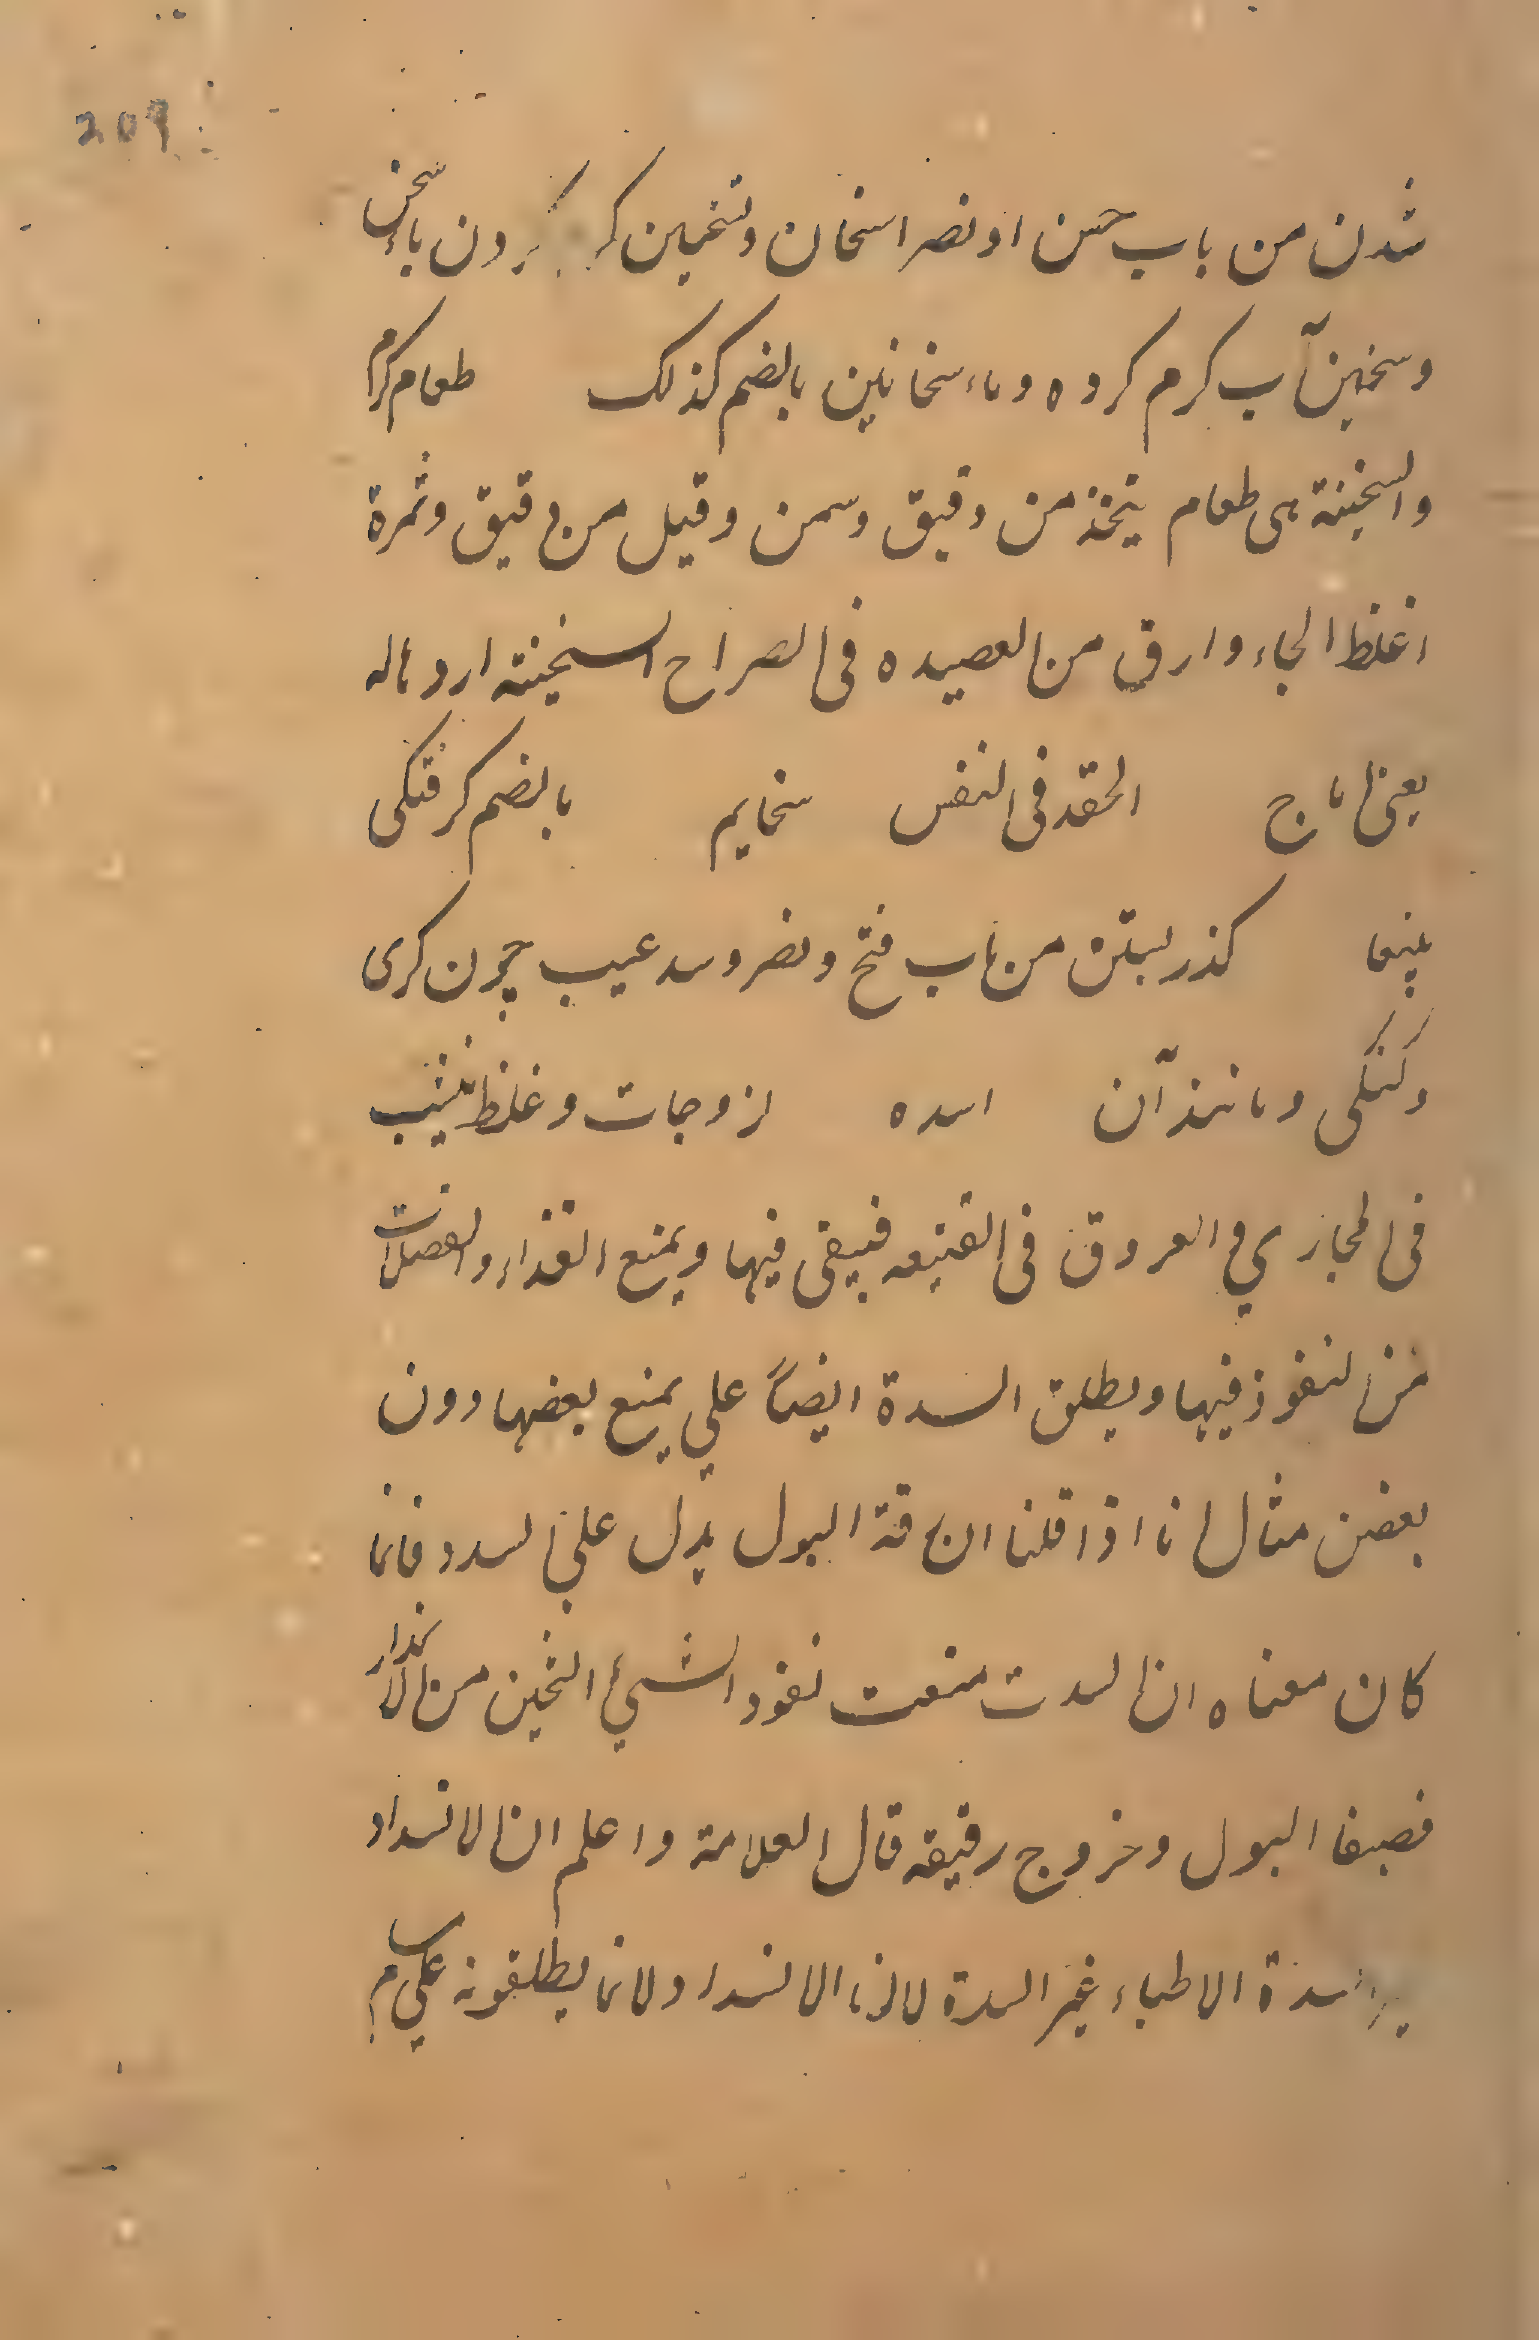 209
شدن من باب حسن او نصر اسخان و تسخین کردن باء سخن
و سخین آب کرم کرده و ماء سخانین بالضم کذلک طعام کرم
والسخینة هی طعام یتخذ من دقیق وسمن وقیل من دقیق وثمرة
اغلظ الحاء وارق من العصیده فی الصراح السخینته ارد هاله
یعنی اماج الحقد فی النفس سخایم بالضم کرفتکی
بینها کذر لبتن من باب فتح ونصر و سد عیب چون کری
و کنکی و مانند آن اسده لزوجات و غلظ یشب
فی المجاری و العروق فی القنیعه فیبقی فیها و یمنع الغذاء والفضلات
من النفوذ فیها ویطلق السدة ایضاً علی یمنع بعضها دون
بعض مثال انا اذا قلنا ان رقة البول یدل علی السدد فانما
کان معناه ان السدت منعت نفوذ الشیئ الثخین من الانحدار
فصفا البول و خروج رقیقه قال العلامة واعلم ان الانسداد
اسدة الاطباء غیر السدة لانا الانسداد ولانما یطلقونه علی